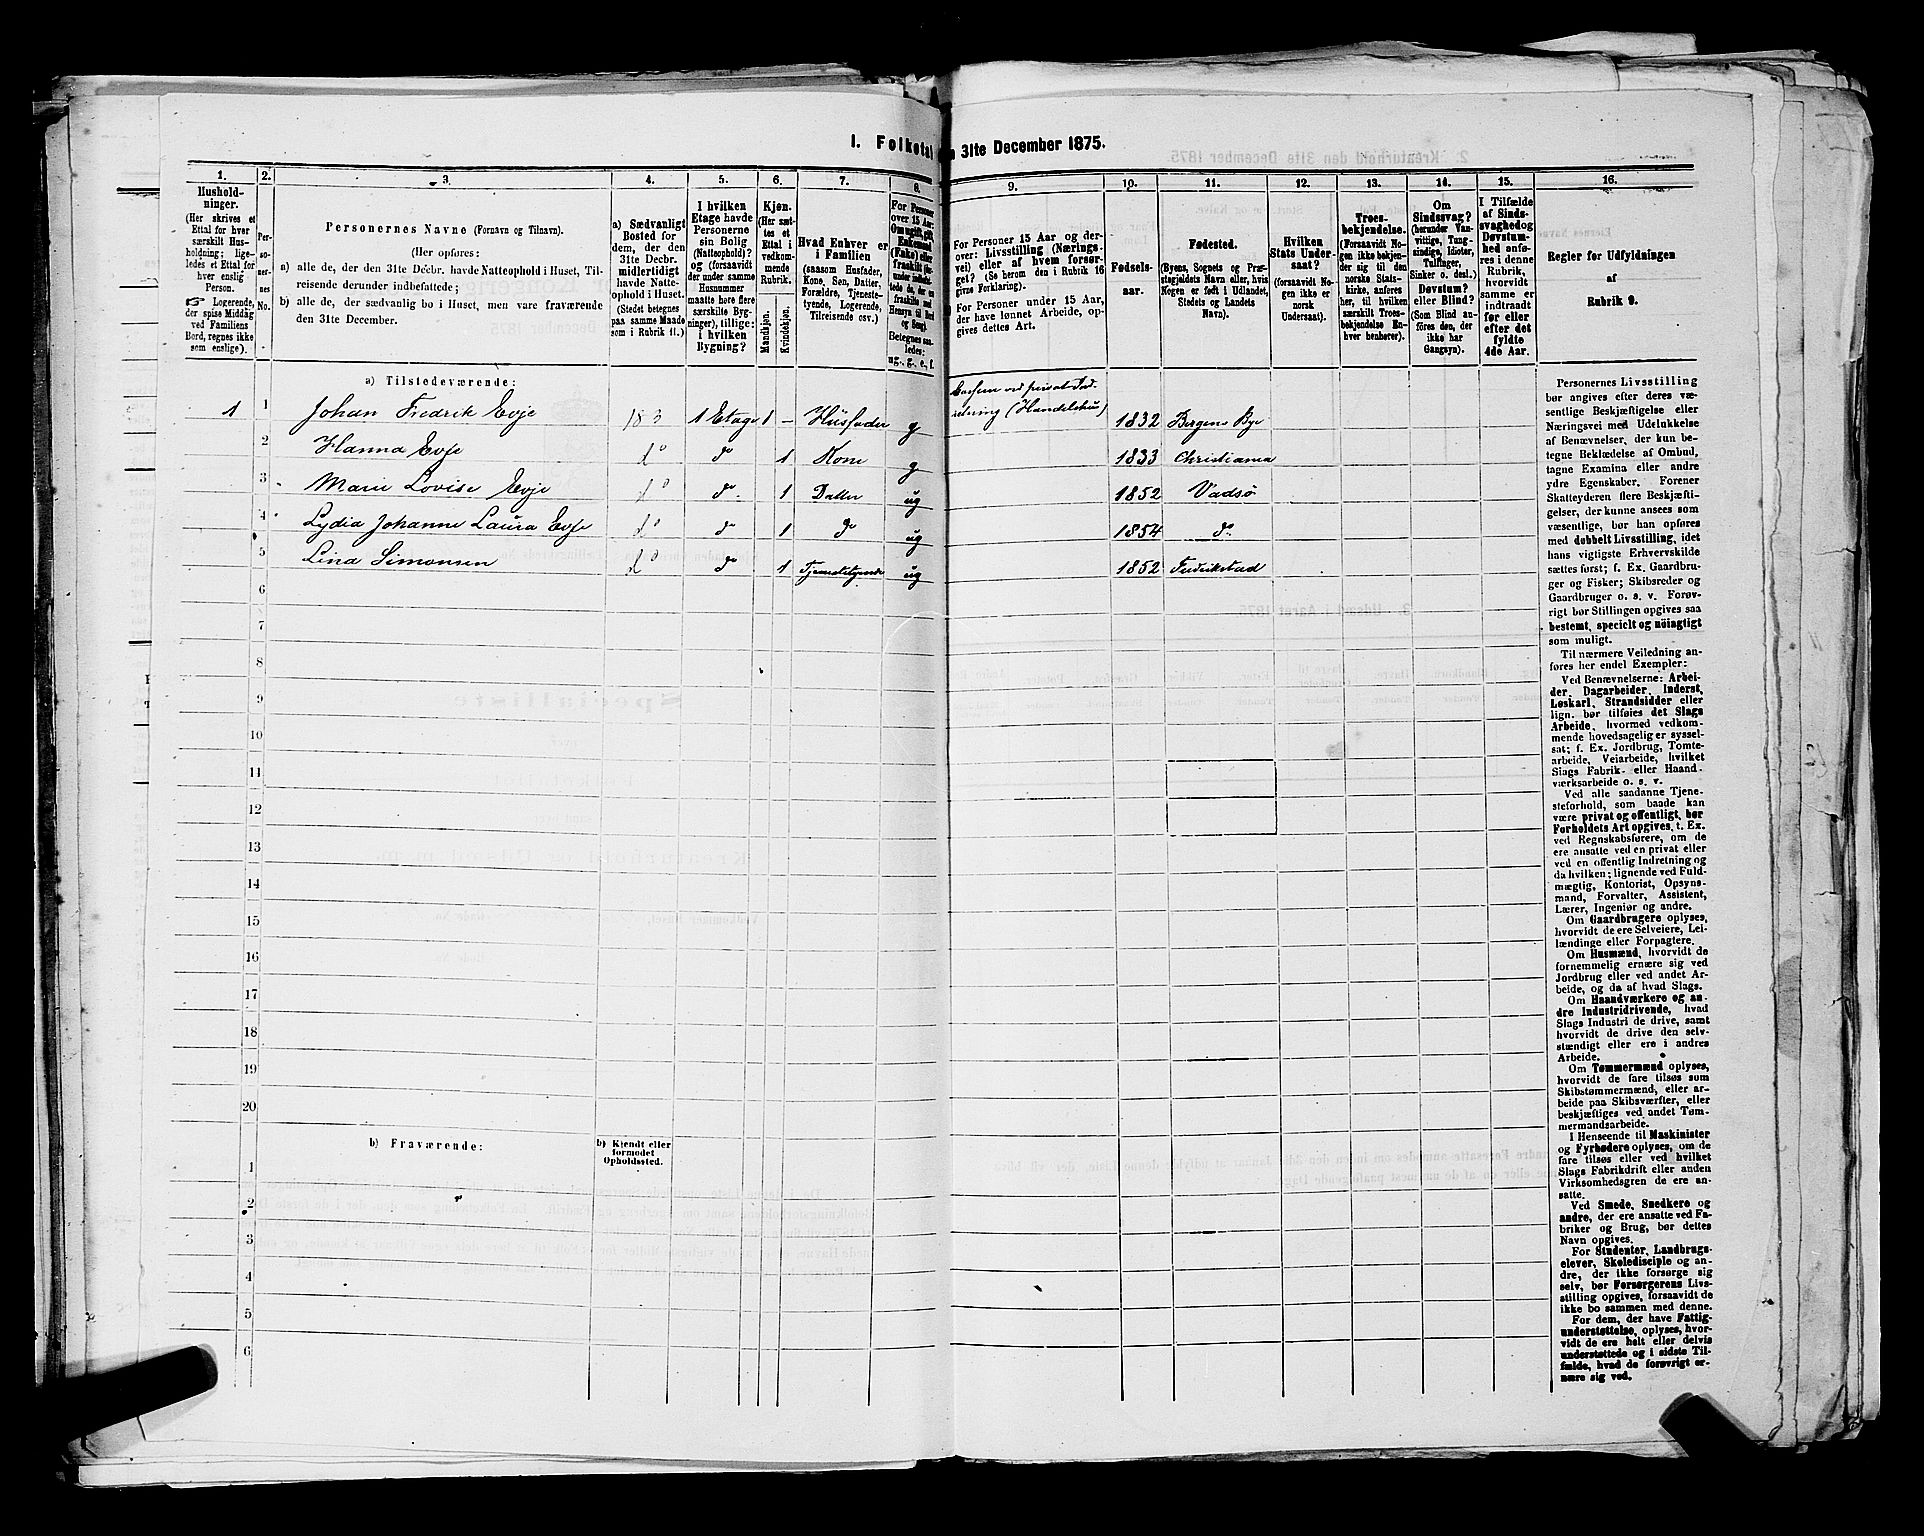 1. Folketal
31te December 1875.
1. 2. 3. 4. 5. 6. 7. 8. 9. 10. 11. 12. 13. 14. 15. 16.
Husholdninger.
(Her skrives et
Ettal for hver
særskilt Husholdning;
ligeledes et Ettal for
hver enslig
Person.
Logerende,
der spise Middag
ved Familiens
Bord, regnes ikke
som enslige).
Personernes No.
Personernes Navne (Fornavn og Tilnavn).
(Her opføres:
a) alle de, der den 31te Decbr. havde Natteophold i Huset, Tilreisende
derunder indbefattede;
b) alle de, der sædvanlig bo i Huset, men vare fraværende
den 31te December.
a) Sædvanligt
Bosted for
dem, der den
31te Decbr.
midlertidigt
havde Natteophold
i Huset.
(Stedet betegnes
paa samme Maade
som i Rubrik 11.)
I hvilken
Etage havde
Personerne
sin Bolig
(Natteophold)?
og (forsaavidt
der under samme
Husnummer
maatte høre flere
særskilte Bygninger),
tillige:
i hvilken
Bygning?
Kjøn.
(Her sættes
et
Ettal i
vedkommende
Rubrik.
Mandkjøn.
Kvindekjøn.
Hvad Enhver er
i Familien
(saasom Husfader,
Kone, Søn, Datter,
Forældre, Tjenestetyende,
Logerende,
Tilreisende osv.)
For Personer
over 15 Aar:
Om ugift, gift,
Enkemand
(Enke) eller
fraskilt
Betegnes saaledes:
ug., g., e., f.
For Personer 15 Aar og derover:
Livsstilling (Næringsvei)
eller af hvem forsørget?
(Se herom den i Rubrik 16
givne Forklaring).
For Personer under 15 Aar,
der have lønnet Arbeide, opgives
dettes Art.
Fødselsaar.
Fødested.
(Byens, Sognets og Præstegjeldets
Navn eller, hvis
Nogen er født i Udlandet,
Stedets og Landets
Navn).
Hvilken
Stats Undersaat?
(forsaavidt Nogen
ikke er
norsk
Undersaat).
Troesbekjendelse.
(Forsaavidt Nogen
ikke bekjender
sig til den
norske Statskirke,
anføres
her, til hvilken
særskilt Troesbekjendelse
Enhver
henhører).
Om
Sindssvag?
(herunder Vanvittige,
Tungsindige,
Idioter,
Tullinger,
Sinker o. desl.)
Døvstum?
eller Blind?
(Som Blind anføres
den, der
ikke har
Gangsyn).
I Tilfælde
af Sindssvaghed
og
Døvstumhed
anføres
i denne
Rubrik,
hvorvidt
samme er
indtraadt
før eller
efter det
fyldte
4de Aar.
Regler for Udfyldningen
af
Rubrik 9.
a) Tilstedeværende:
1 1 Johan Fredrik Evje 183 1 Etage 1 – Husfader g 1832 Bergens By
2 Hanna Evje do do 1 Kone g 1833 Christiania
3 Marie Lovise Evje do do 1 Datter ug 1852 Vadsø
4 Lydia Johanne Laura Evje do do 1 do ug 1854 do
5 Lina Simonsen do do 1 Tjenestetyende ug 1852 Fredrikstad
6
7
8
9
10
11
12
13
14
15
16
17
18
19
20
b) Fraværende:
b) Kjendt eller
formodet
Opholdssted.
1
2
3
4
5
6
Personernes Livsstilling
bør angives efter deres væsentlige
Beskjæftigelse eller
Næringsvei med Udelukkelse
af Benævnelser, der kun betegne
Beklædelse af Ombud,
tagne Examina eller andre
ydre Egenskaber. Forener
Skatteyderen flere Beskjæftigelser,
der kunne ansees som
væsentlige, bør han opføres
med dobbelt Livsstilling, idet
hans vigtigste Erhvervskilde
sættes først; f. Ex. Gaardbruger
og Fisker; Skibsreder og
Gaardbruger o. s. v. Forøvrigt
bør Stillingen opgives saa
bestemt, specielt og nøiagtigt
som muligt.
Til nærmere Veiledning anføres
her endel Exempler:
Ved Benævnelserne: Arbeider,
Dagarbeider, Inderst,
Løskarl, Strandsidder eller
lign. bør tilføies det Slags
Arbeide, hvormed vedkommende
hovedsagelig er sysselsat;
f. Ex. Jordbrug, Tomtearbeide,
Veiarbeide, hvilket
Slags Fabrik- eller Haandværksarbeide
o. s. v.
Ved alle saadanne Tjenesteforhold,
som baade kan
være privat og offentligt, bør
Forholdets Art opgives, t. Ex.
ved Regnskabsførere, om de
ere ansatte ved en privat eller
ved en offentlig Indretning og
da hvilken; lignende ved Fuldmægtig,
Kontorist, Opsynsmand,
Forvalter, Assistent,
Lærer, Ingeniør og andre.
Om Gaardbrugere oplyses,
hvorvidt de ere Selveiere, Leilændinge
eller Forpagtere.
Om Husmænd, hvorvidt de
fornemmelig ernære sig ved
Jordbrug eller ved andet Arbeide,
og da af hvad Slags.
Om Haandværkere og andre
Industridrivende, hvad
Slags Industri de drive, samt
hvorvidt de drive den selvstændigt
eller ere i andres
Arbeide.
Om Tømmermænd oplyses,
hvorvidt de fare tilsøs som
Skibstømmermænd, eller arbeide
paa Skibsværfter, eller
beskjæftiges ved andet Tømmermandsarbeide.
I Henseende til Maskinister
og Fyrbødere oplyses, om de
fare tilsøs eller ved hvilket
Slags Fabrikdrift eller anden
Virksomhedsgren de ere ansatte.
Ved Smede, Snedkere og
andre, der ere ansatte ved Fabriker
og Brug, bør dettes
Navn opgives.
For Studenter, Landbrugselever,
Skoledisciple og andre,
der ikke forsørge sig
selv, bør Forsørgerens Livsstilling
opgives, forsaavidt de
ikke bo sammen med denne.
For dem, der have Fattigunderstøttelse,
oplyses, hvorvidt
de ere helt eller delvis
understøttede og i sidste Tilfælde,
hvad de forøvrigt ernære
sig ved.